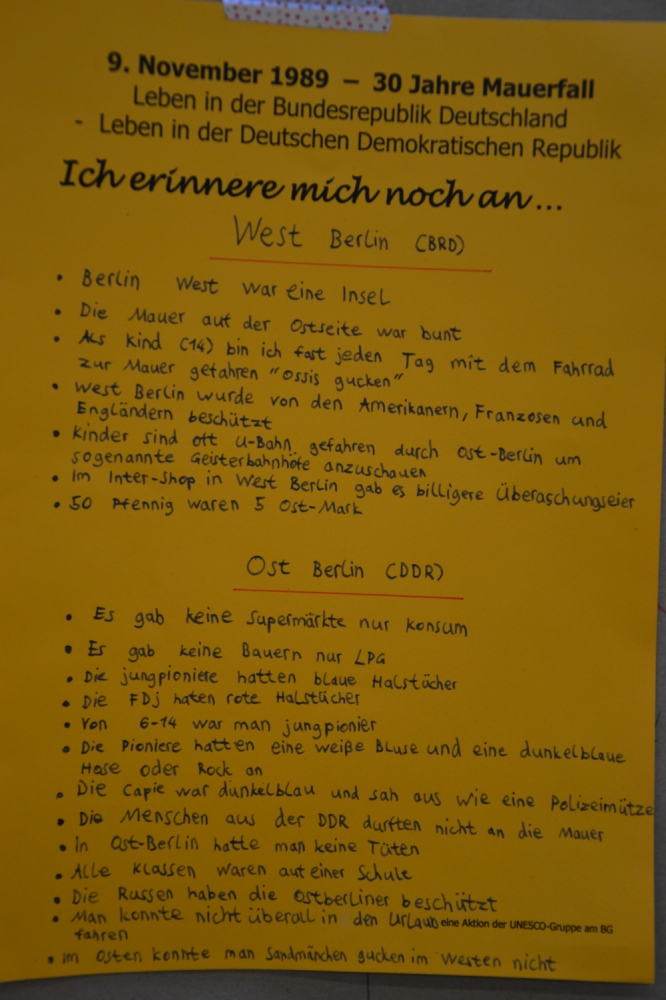 9. November 1989 – 30 Jahre Mauerfall
Leben in der Bundesrepublik Deutschland
- Leben in der Deutschen Demokratischen Republik
Ich erinnere mich noch an...
West Berlin (BRD)
• Berlin West war eine Insel
• Die Mauer auf der Ostseite war bunt
• Als Kind (14) bin ich fast jeden Tag mit dem Fahrrad
zur Mauer gefahren "Ossis gucken"
• West Berlin wurde von den Amerikanern, Franzosen und
Engländern beschützt
• Kinder sind oft U-Bahn gefahren durch Ost-Berlin um
sogenannte Geisterbahnhöfe anzuschauen
• Im Inter-Shop in West Berlin gab es billigere Überaschungseier
• 50 Pfennig waren 5 Ost-Mark
Ost Berlin (DDR)
• Es gab keine Supermärkte nur Konsum
• Es gab keine Bauern nur LPG
• Die jungpioniere hatten blaue Halstücher
• Die FDj haten rote Halstücher
• Von 6-14 war man jungpionier
• Die Pioniere hatten eine weiße Bluse und eine dunkelblaue
Hose oder Rock an
• Die Capie war dunkelblau und sah aus wie eine Polizeimütze
• Die Menschen aus der DDR durften nicht an die Mauer
• In Ost-Berlin hatte man keine Tüten
• Alle Klassen waren auf einer Schule
• Die Russen haben die Ostberliner beschützt
• Man konnte nicht überall in den Urlaub
fahren
eine Aktion der UNESCO-Gruppe am BG
• im Osten konnte man Sandmänchen gucken im Westen nicht